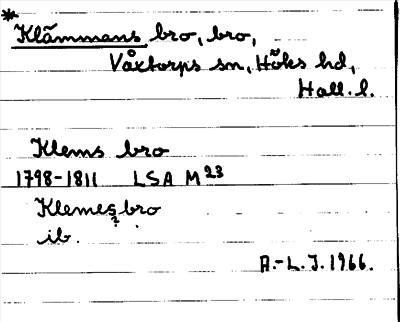 *
Klämmans bro, bro,
Våxtorps sn, Höks hd,
Hall. l.
Klems bro
1798-1811 LSA M 23
Klemes bro
?
ib.
A.-L. J. 1966.